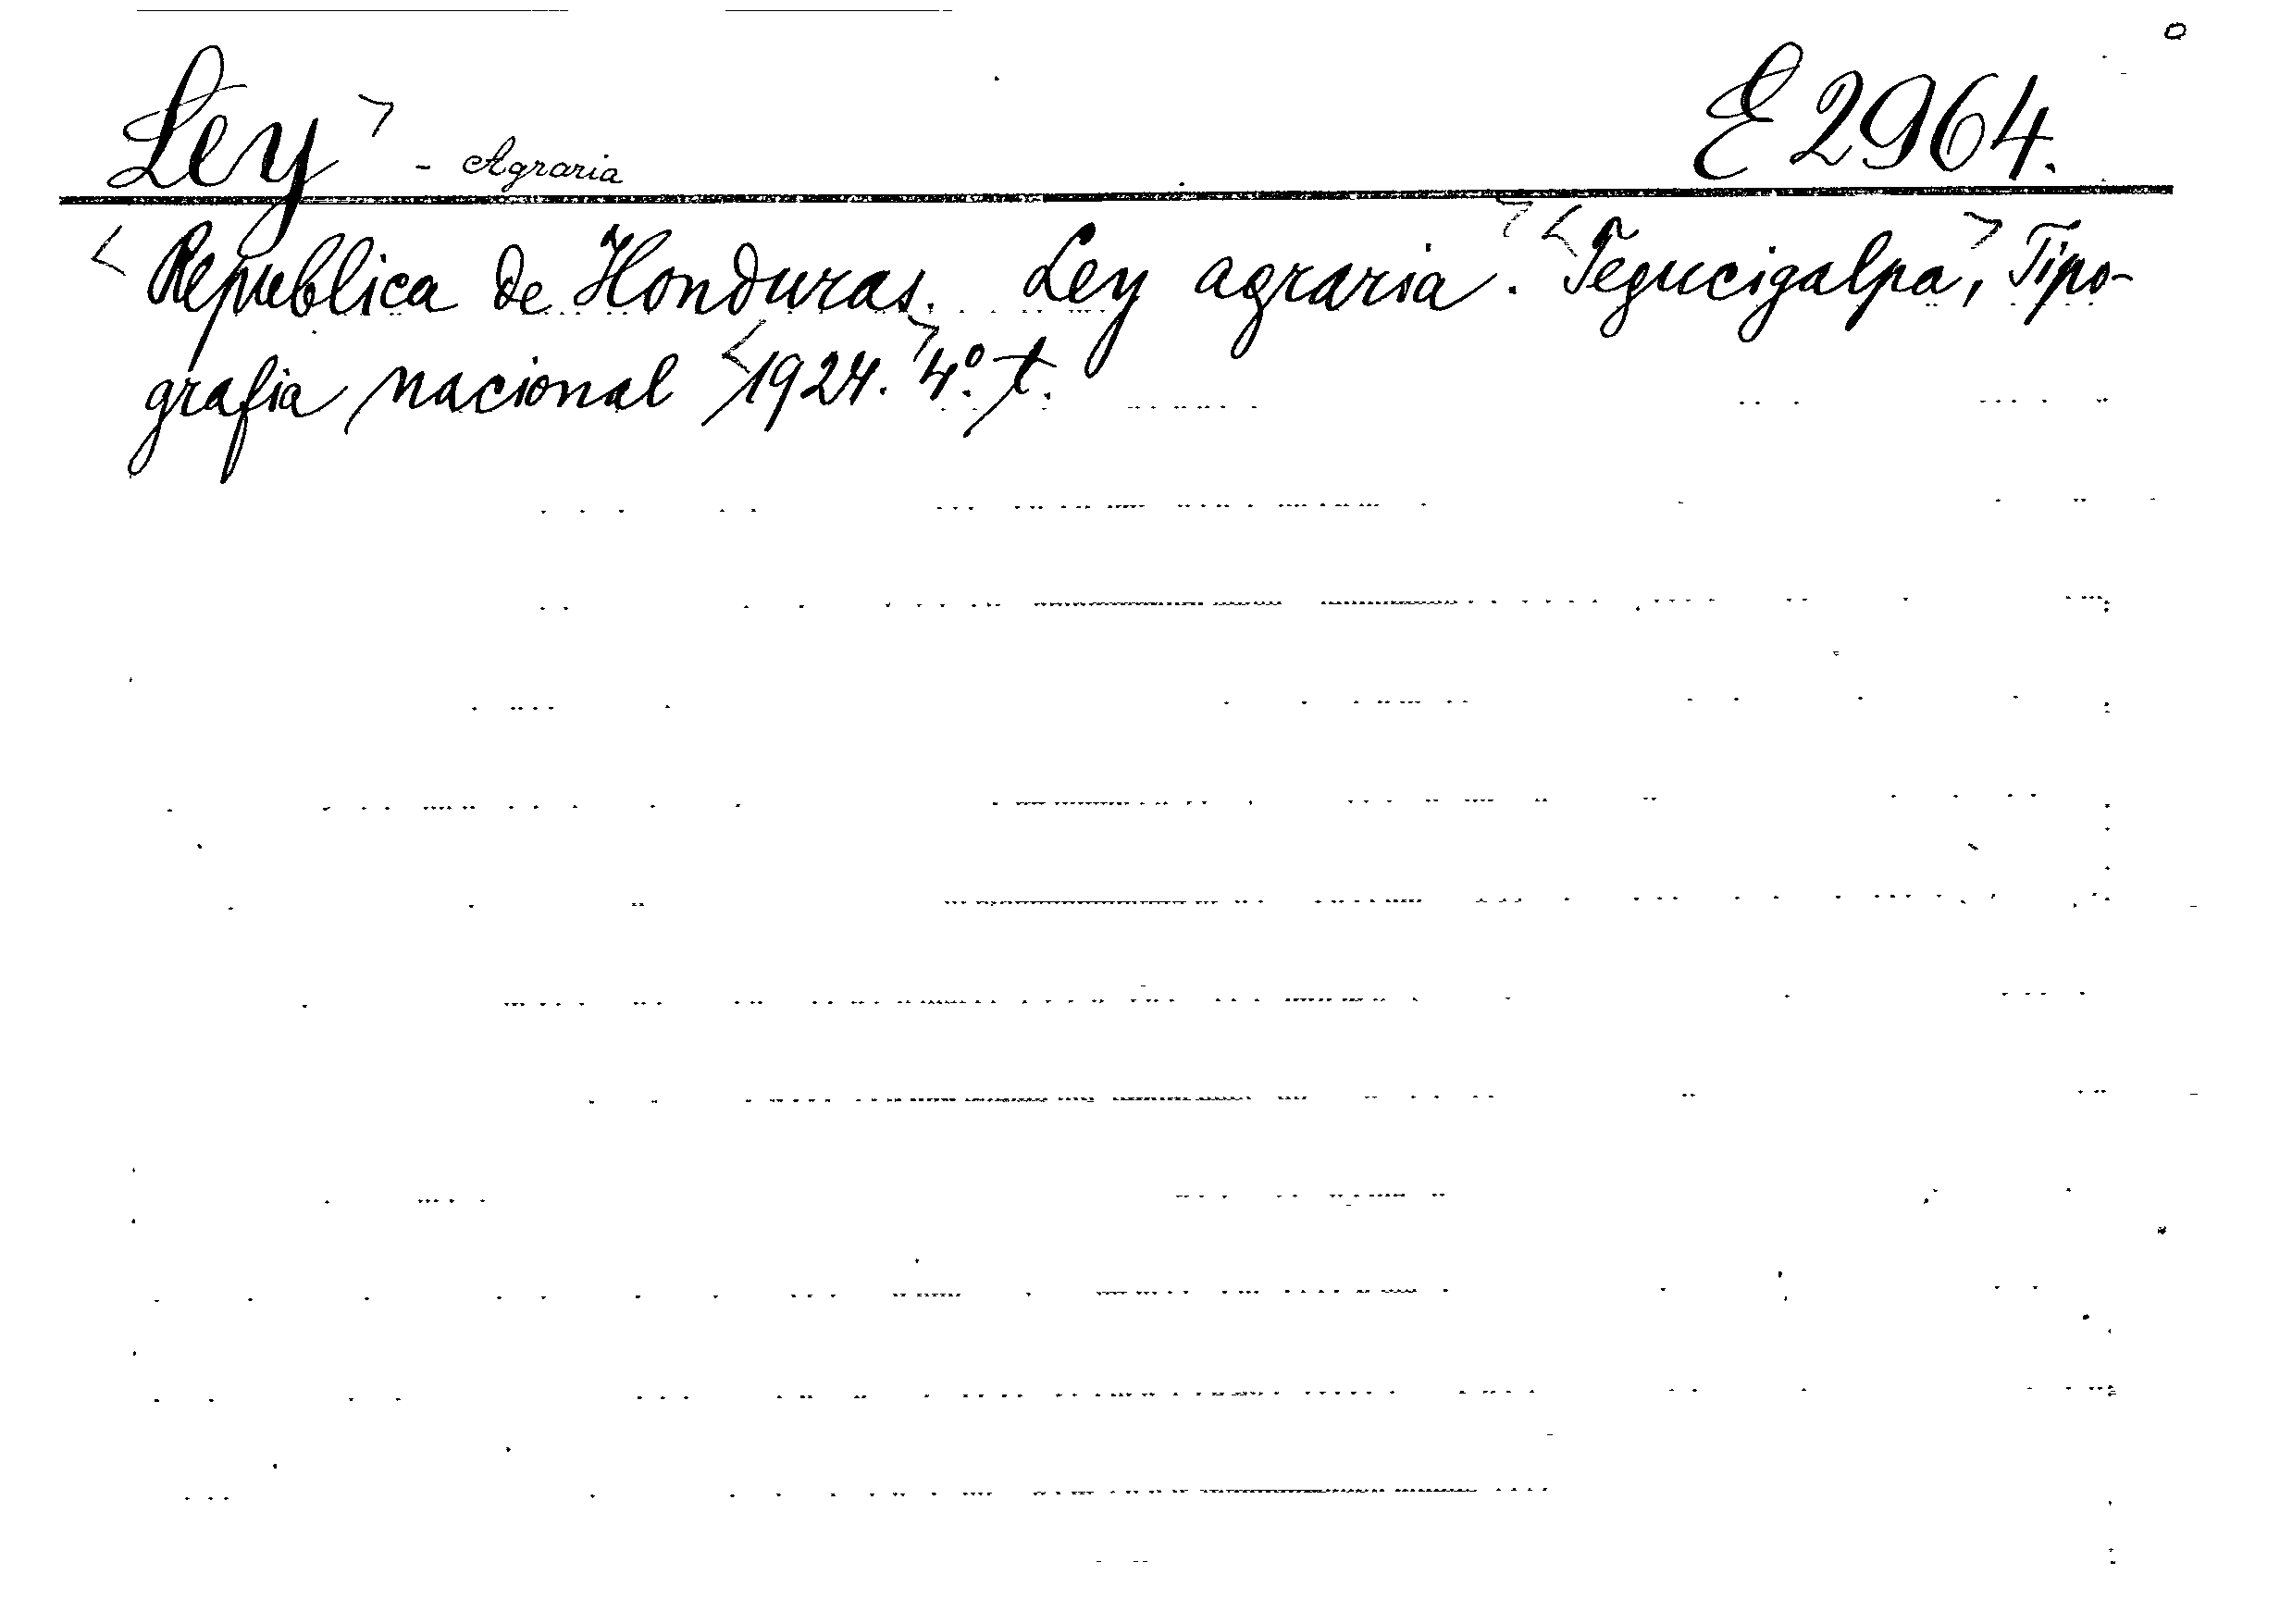 Ley> - Agraria E 2964.
<Republica de Honduras. Ley agraria.> <Tegucigalpa>, Tipo-
grafia nacional <1924.> 4º. t.